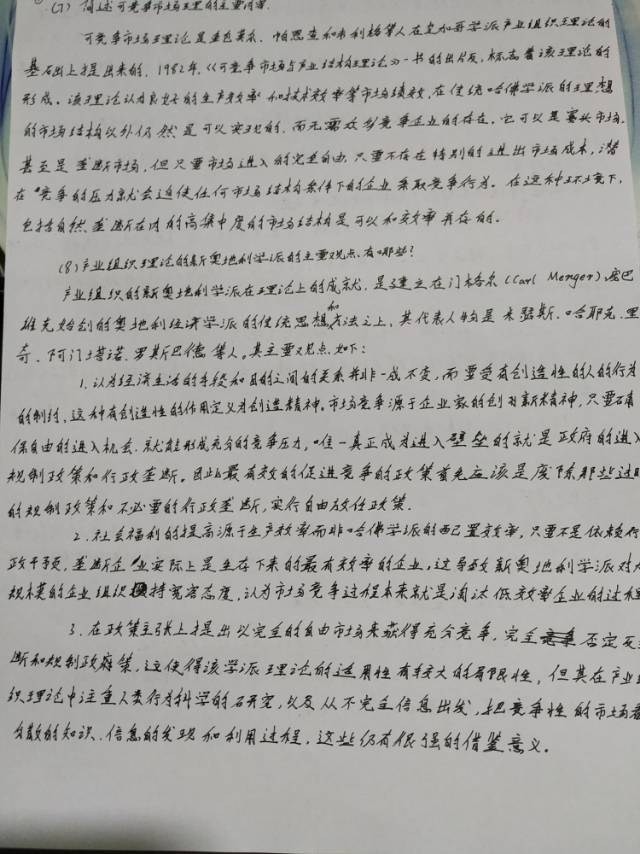 (7) 简述可竞争市场理论的主要内容.
可竞争市场理论是鲍莫尔、帕恩查和韦利格等人在芝加哥学派产业组织理论的
基础上提出来的. 1982年,《可竞争市场与产业结构理论》一书的出版,标志着该理论的
形成。该理论认为良好的生产效率和技术效率等市场绩效,在传统哈佛学派的理想
的市场结构以外仍然是可以实现的,而无需众多竞争企业的存在。它可以是寡头市场.
甚至是垄断市场,但只要市场进入的完全自由,只要不存在特别的进出市场成本,潜
在竞争的压力就会迫使任何市场结构条件下的企业采取竞争行为。在这种环境下,
包括自然垄断在内的高集中度的市场结构是可以和效率并存的.
(8)产业组织理论的新奥地利学派的主要观点有哪些?
产业组织的新奥地利学派在理论上的成就,是建立在门格尔(Carl Menger)、庞巴
维克始创的奥地利经济学派的传统思想和方法之上,其代表人物是米瑟斯、哈耶克、里
奇、阿门塔诺、罗斯巴德等人。其主要观点如下:
1.认为经济生活的手段和目的之间的关系并非一成不变,而要受有创造性的人的行为
的制约,这种有创造性的作用定义为创造精神,市场竞争源于企业家的创新精神,只要确
保自由的进入机会,就能形成充分的竞争压力,唯一真正成为进入壁垒的就是政府的进入
规制政策和行政垄断。因此最有效的促进竞争的政策首先应该是废除那些过时
的规制政策和不必要的行政垄断,实行自由放任政策.
2.社会福利的提高源于生产效率而非哈佛学派的配置效率,只要不是依赖行
政干预,垄断企业实际上是生存下来的最有效率的企业,这导致新奥地利学派对大
规模的企业组织持宽容态度,认为市场竞争过程本来就是淘汰低效率企业的过程
3.在政策主张上提出以完全的自由市场来获得充分竞争,完全否定反垄
断和规制政府策,这使得该学派理论的适用性有较大的局限性,但其在产业组
织理论中注重人类行为科学的研究,以及从不完全信息出发,把竞争性的市场看
分散的知识、信息的发现和利用过程,这些仍有很强的借鉴意义。